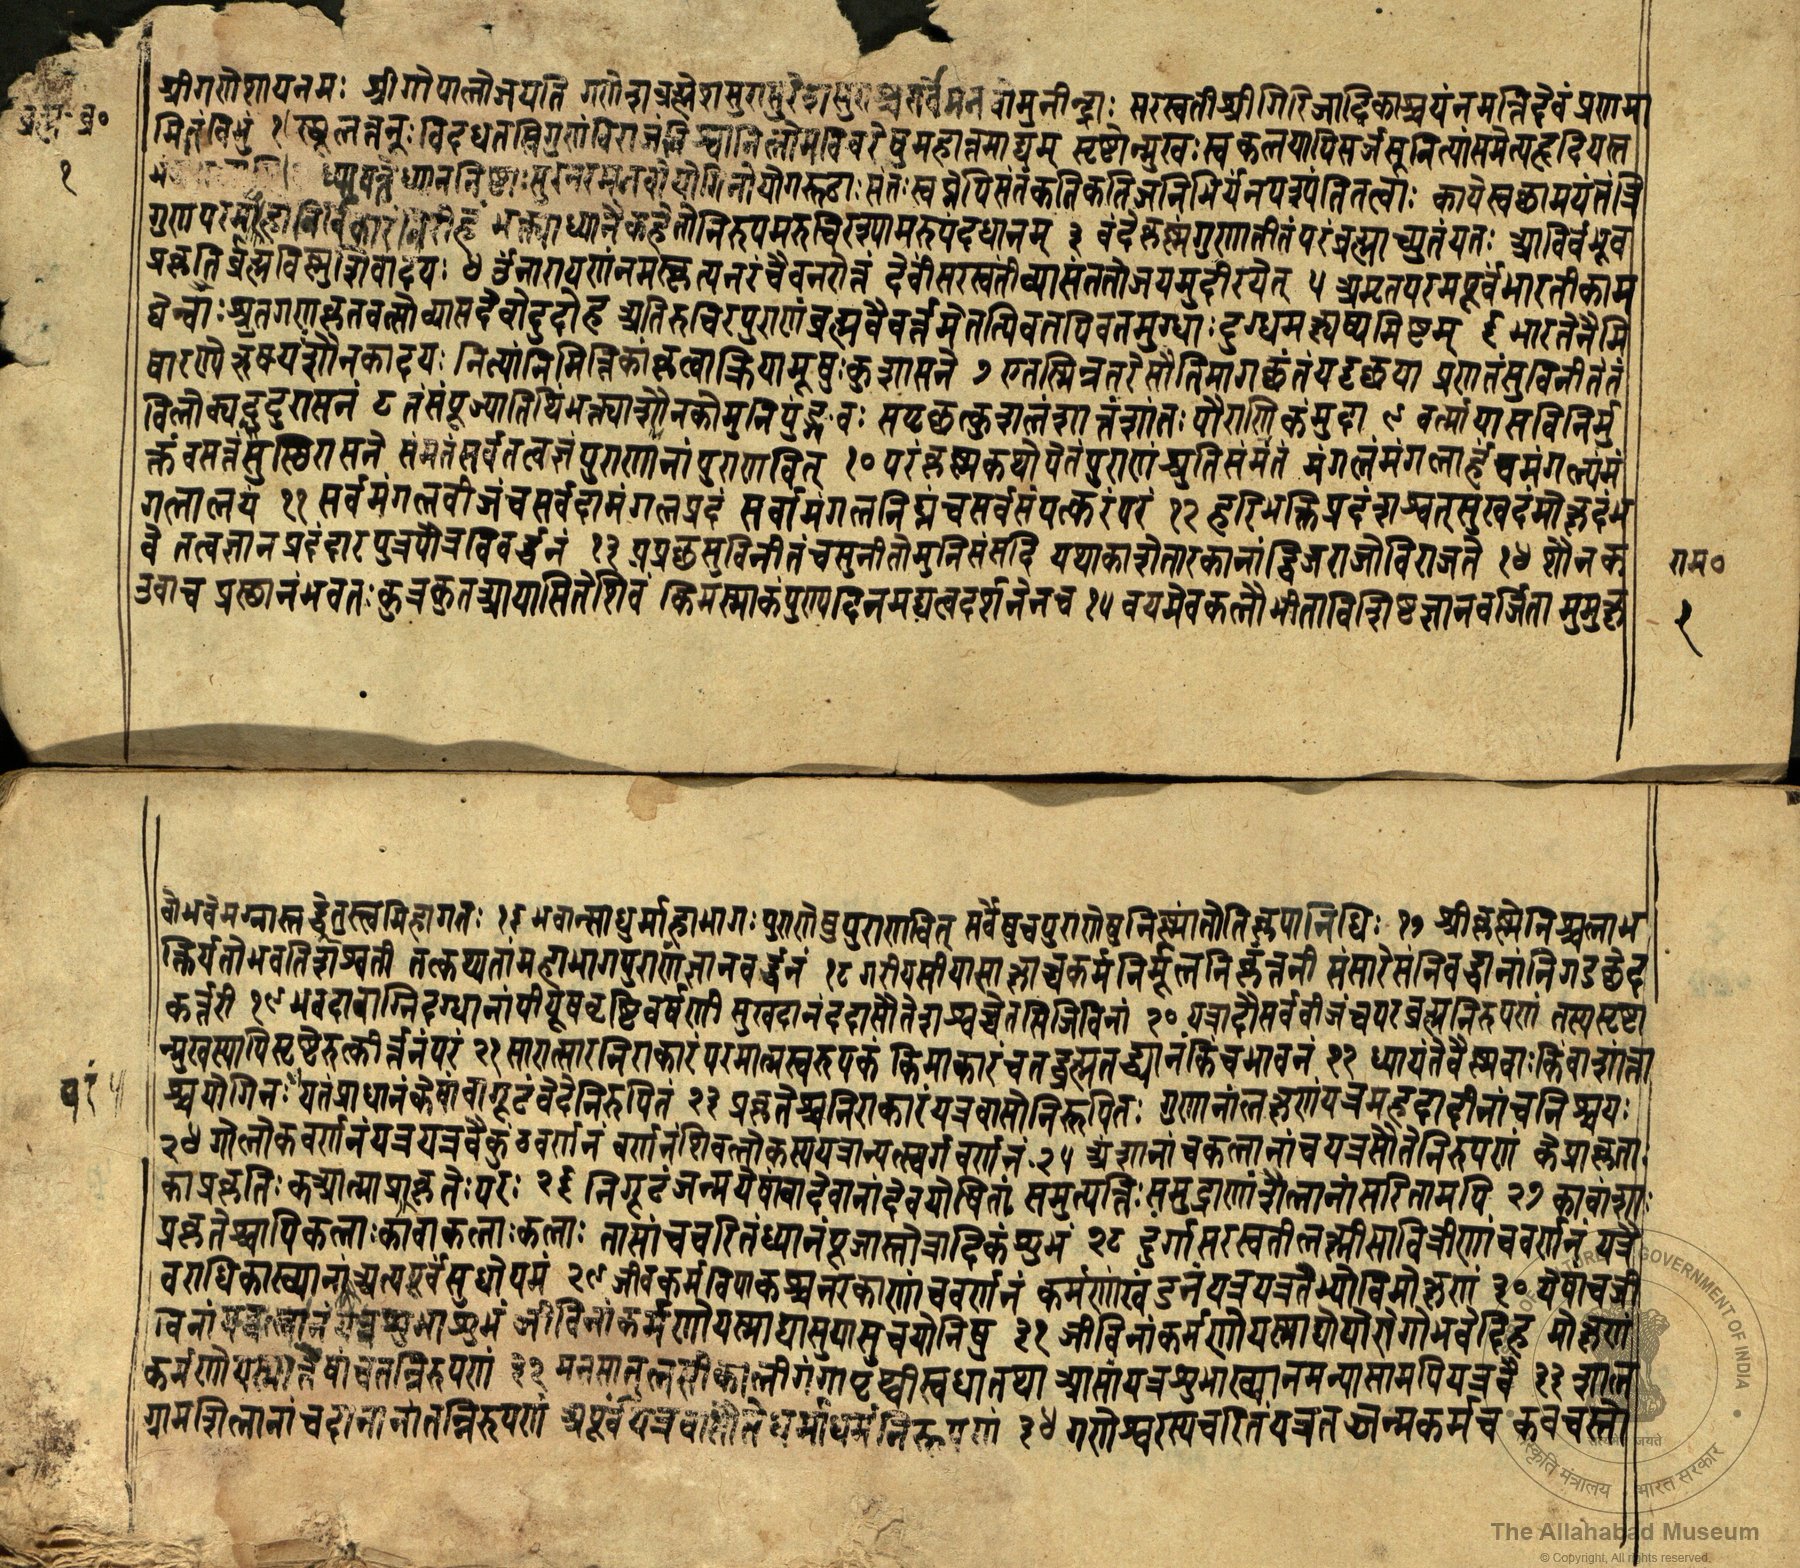 श्रीगणेशायनमः श्रीगोपालोजयति गणेशब्रह्मेशसुरासुरेशसुराश्चसर्वेमनवोमुनीन्द्राः सरस्वतीश्रीगिरिजादिकाश्चयंनमन्तिदेवंप्रणमा
ब्रह्म॰ब्र॰
मितंविभुं १ स्थूलन्तनूःविदधतंत्रिगुणंविराजंविश्वानिलोमविवरेषुमहान्तमाद्यम् सृष्टोन्मुखःस्वकलयापिससर्जसूनित्यांसमेत्यहृदियस्त
१
ध्यायन्तेध्याननिष्ठाःसुरनरमनवोयोगिनोयोगरूढाःसंतःस्वप्नेपिसंतंकतिकतिजनिभिर्यंनपश्यंतितत्वाः कायेस्वछामयंतंत्रि
गुणपरमहोनिर्विकारंनिरीहं भक्त्याध्यानैकहेतोनिरुपमरुचिरश्यामरुपंदधानम् ३ वंदेकृष्णंगुणातीतंपरंब्रह्माच्युतंयतः आविर्वभूव
प्रकृतिर्ब्रह्मविष्णुशिवादयः ४ ॐनारायणंनमस्कृत्यनरंचैवनरोत्तं देवींसरस्वतींव्यासंततोजयमुदीरयेत् ५ अमृतपरमपूर्वंभारतीकाम
धेन्वाःश्रुतगणकृतवत्सोव्यासदेवोदुदोह अतिरुचिरपुराणंब्रह्मवैवर्त्तमेतत्पिवतपिवतमुग्धाःदुग्धमक्षय्यमिष्टम् ६ भारतेनैमि
षारण्येऋषयःशौनकादयः नित्यांनिमित्तिकांकृत्वाक्रियामूषुःकुशासने ७ एतस्मिन्नंतरेसौतिमागछंतंयदृछया प्रणतंसुविनीतंतं
विलोक्यदुदुरासनं ८ तंसंपूज्यातिथिंभक्त्याशौनकोमुनिपुंङ्गवः सपृछत्कुशलंशान्तंशांतः पौराणिकंमुदा ९ वर्त्मायासविनिर्मु
क्तंवसन्तंसुस्थिरासने संमतंसर्वतत्वज्ञंपुराणानांपुराणवित् १० परंकृष्णकथोपेतंपुराणंश्रुतिसंमतं मंगलंमंगलार्हंचमंगल्यंमं
गलालयं ११ सर्वमंगलवीजंचसर्वदामंगलप्रदं सर्वामंगलनिघ्नंचसर्वसंपत्करंपरं १२ हरिभक्तिप्रदंशश्वत्सुखदंमोक्षदंभ
वे तत्वज्ञानप्रदंदारपुत्रपौत्रविवर्द्धनं १३ प्रप्रछसुविनीतंचसुनीतोमुनिसंसदि यथाकाशेतारकानांद्विजराजोविराजते १४ शौनक
राम॰
उवाच प्रस्थानंभवतःकुत्रकुतआयासितेशिवं किमस्माकंपुण्यदिनमद्यत्वदर्शनेनच १५ वयमेवकलौभीताविशिष्टज्ञानवर्जिता मुमुक्ष
१
वोभवेमग्नास्तद्धेतुस्त्वमिहागतः १६ भवान्साधुर्माहाभागःपुराणेषुपुराणवित् सर्वेषुचपुराणेषुनिष्णातोतिकृपानिधिः १७ श्रीकृष्णेनिश्चलाभ
क्तिर्यतोभवतिशाश्वती तत्कथ्यतांमहाभागपुराणंज्ञानवर्द्धनं १८ गरीयसीयासामोक्षाच्चकर्मनिर्मूलनिकृंतनी संसारेसंनिवद्धानांनिगडछेद
कर्त्तरी १९ भवदावाग्निदग्धानांपीयूषवृष्टिवर्षणी सुखदानंददासौतेशश्वच्चेतसिजिविनां २० यत्रादौसर्ववीजंचपरब्रह्मनिरुपणं तस्यसृष्टो
न्मुखस्यापिसृष्टेरुत्कीर्त्तनंपरं २१ सारात्सारनिराकारंपरमात्मस्वरुपकं किमाकारंचतद्ब्रह्मतद्ध्यानंकिंचभावनं २२ ध्यायंतेवैष्णवाःकिंवाशांता
श्चयोगिनः यतंप्राधानंकेषांवागूढंवेदेनिरुपितं २३ प्रकृतेश्चनिराकारंयत्रवासोनिरूपितः गुणानांलक्षणंयत्रमहदादीनांचनिश्चयः
२४ गोलोकवर्णनंयत्रयत्रवैकुंठवर्णनं वर्णनंशिवलोकस्ययत्रान्यत्स्वर्गवर्णनं २५ अंशानांचकलानांचयत्रसौतेनिरुपणं केप्राकृताः
काप्रकृतिःकआत्माप्राकृतेःपरः २६ निगूढंजन्मयेषांवादेवानांदेवयोषितां समुत्पत्तिःसमुद्राणांशैलानांसरितामपि २७ कावांशाः
प्रकृतेश्चापिकलाःकावाकलाःकलाः तासांचचरितंध्यानंपूजास्तोत्रादिकंशुभं २८ दुर्गासरस्वतीलक्ष्मीसावित्रीणांचवर्णनं यत्रै
वराधिकाख्यानंअत्यपूर्वंसुधोपमं २९ जीवकर्मविपाकश्चनरकाणांचवर्णनं कर्मणांखंडनंयत्रयत्रतेभ्योविमोक्षणं ३० येषांचजी
विनां जीविनांकर्मणोयस्माद्यासुयासुचयोनिषु ३१ जीविनांकर्मणोयस्माद्योयोरोगोभवेदिह मोक्षणं
कर्मणोयस्मात्तेषांचतन्निरुपणं ३२ मनसातुलसीकालीगंगापृथ्वीस्वधातथा आसांयत्रशुभाख्यानमन्यासामपियत्रवै ३३ शाल
ग्रामशिलानांचदानानांतन्निरुपणं अपूर्वंयत्रवासौतेधर्माधर्मनिरूपणं ३४ गणेश्वरस्यचरितंयत्रतज्जन्मकर्मच कवचस्तो
GOVERNMENT OF INDIA
संस्कृति मंत्रालय भारत सरकार
The Allahabad Museum
© Copyright, All rights reserved